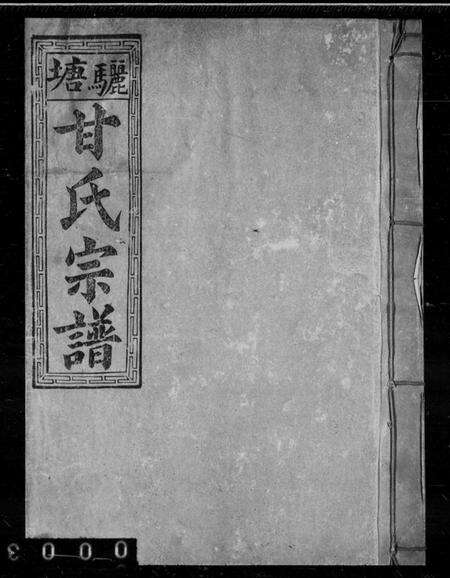 驪塘
甘氏宗譜
0003